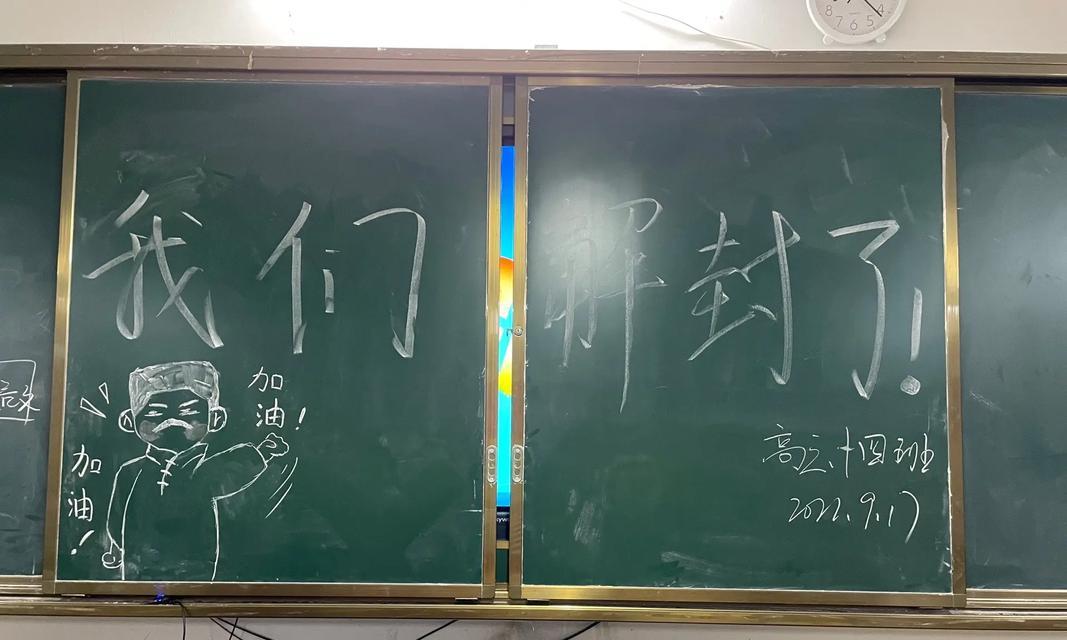 我们解封了!
加油!
加油!
高三、十四班
2022.9.17
8 7 6 5